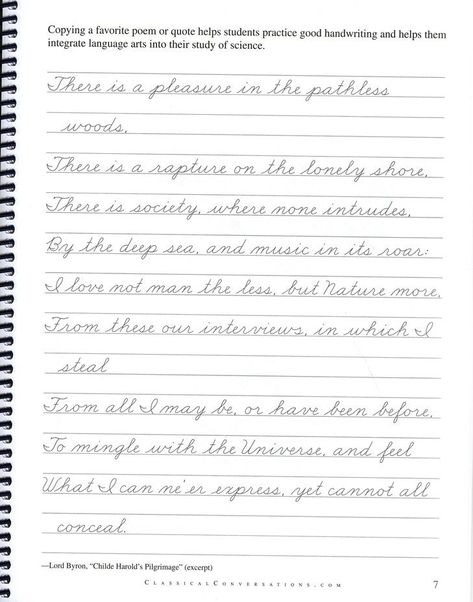 Copying a favorite poem or quote helps students practice good handwriting and helps them
integrate language arts into their study of science.
There is a pleasure in the pathless
woods,
There is a rapture on the lonely shore,
There is society, where none intrudes,
By the deep sea, and music in its roar:
I love not man the less, but Nature more,
From these our interviews, in which I
steal
From all I may be, or have been before,
To mingle with the Universe, and feel
What I can ne'er express, yet cannot all
conceal.
—Lord Byron, "Childe Harold's Pilgrimage" (excerpt)
CLASSICALCONVERSATIONS.COM
7